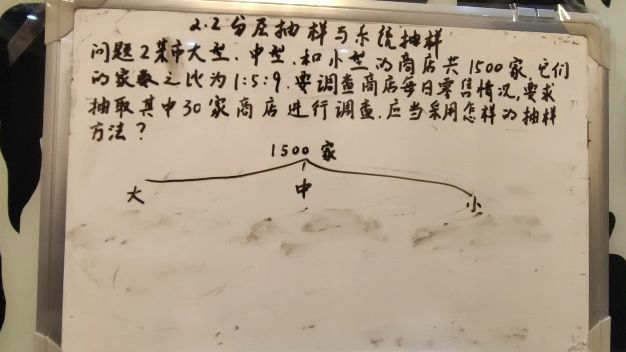 2.2分层抽样与系统抽样
问题2某市大型、中型、和小型的商店共1500家,它们
的家数之比为1:5:9.要调查商店每日零售情况,要求
抽取其中30家商店进行调查,应当采用怎样的抽样
方法?
1500家
大 中 小